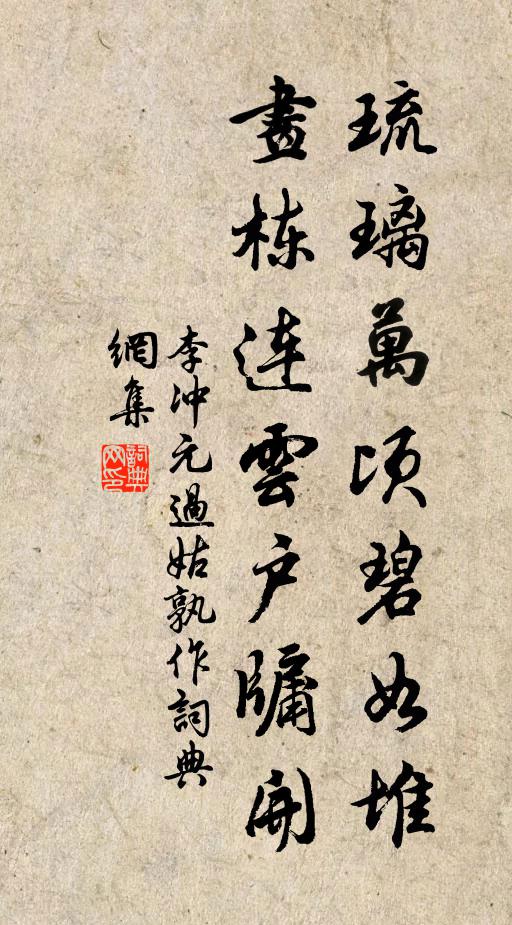 琉璃萬頃碧如堆
畫栋連雲户牖開
李冲元過姑孰作詞典
網集
詞典網印